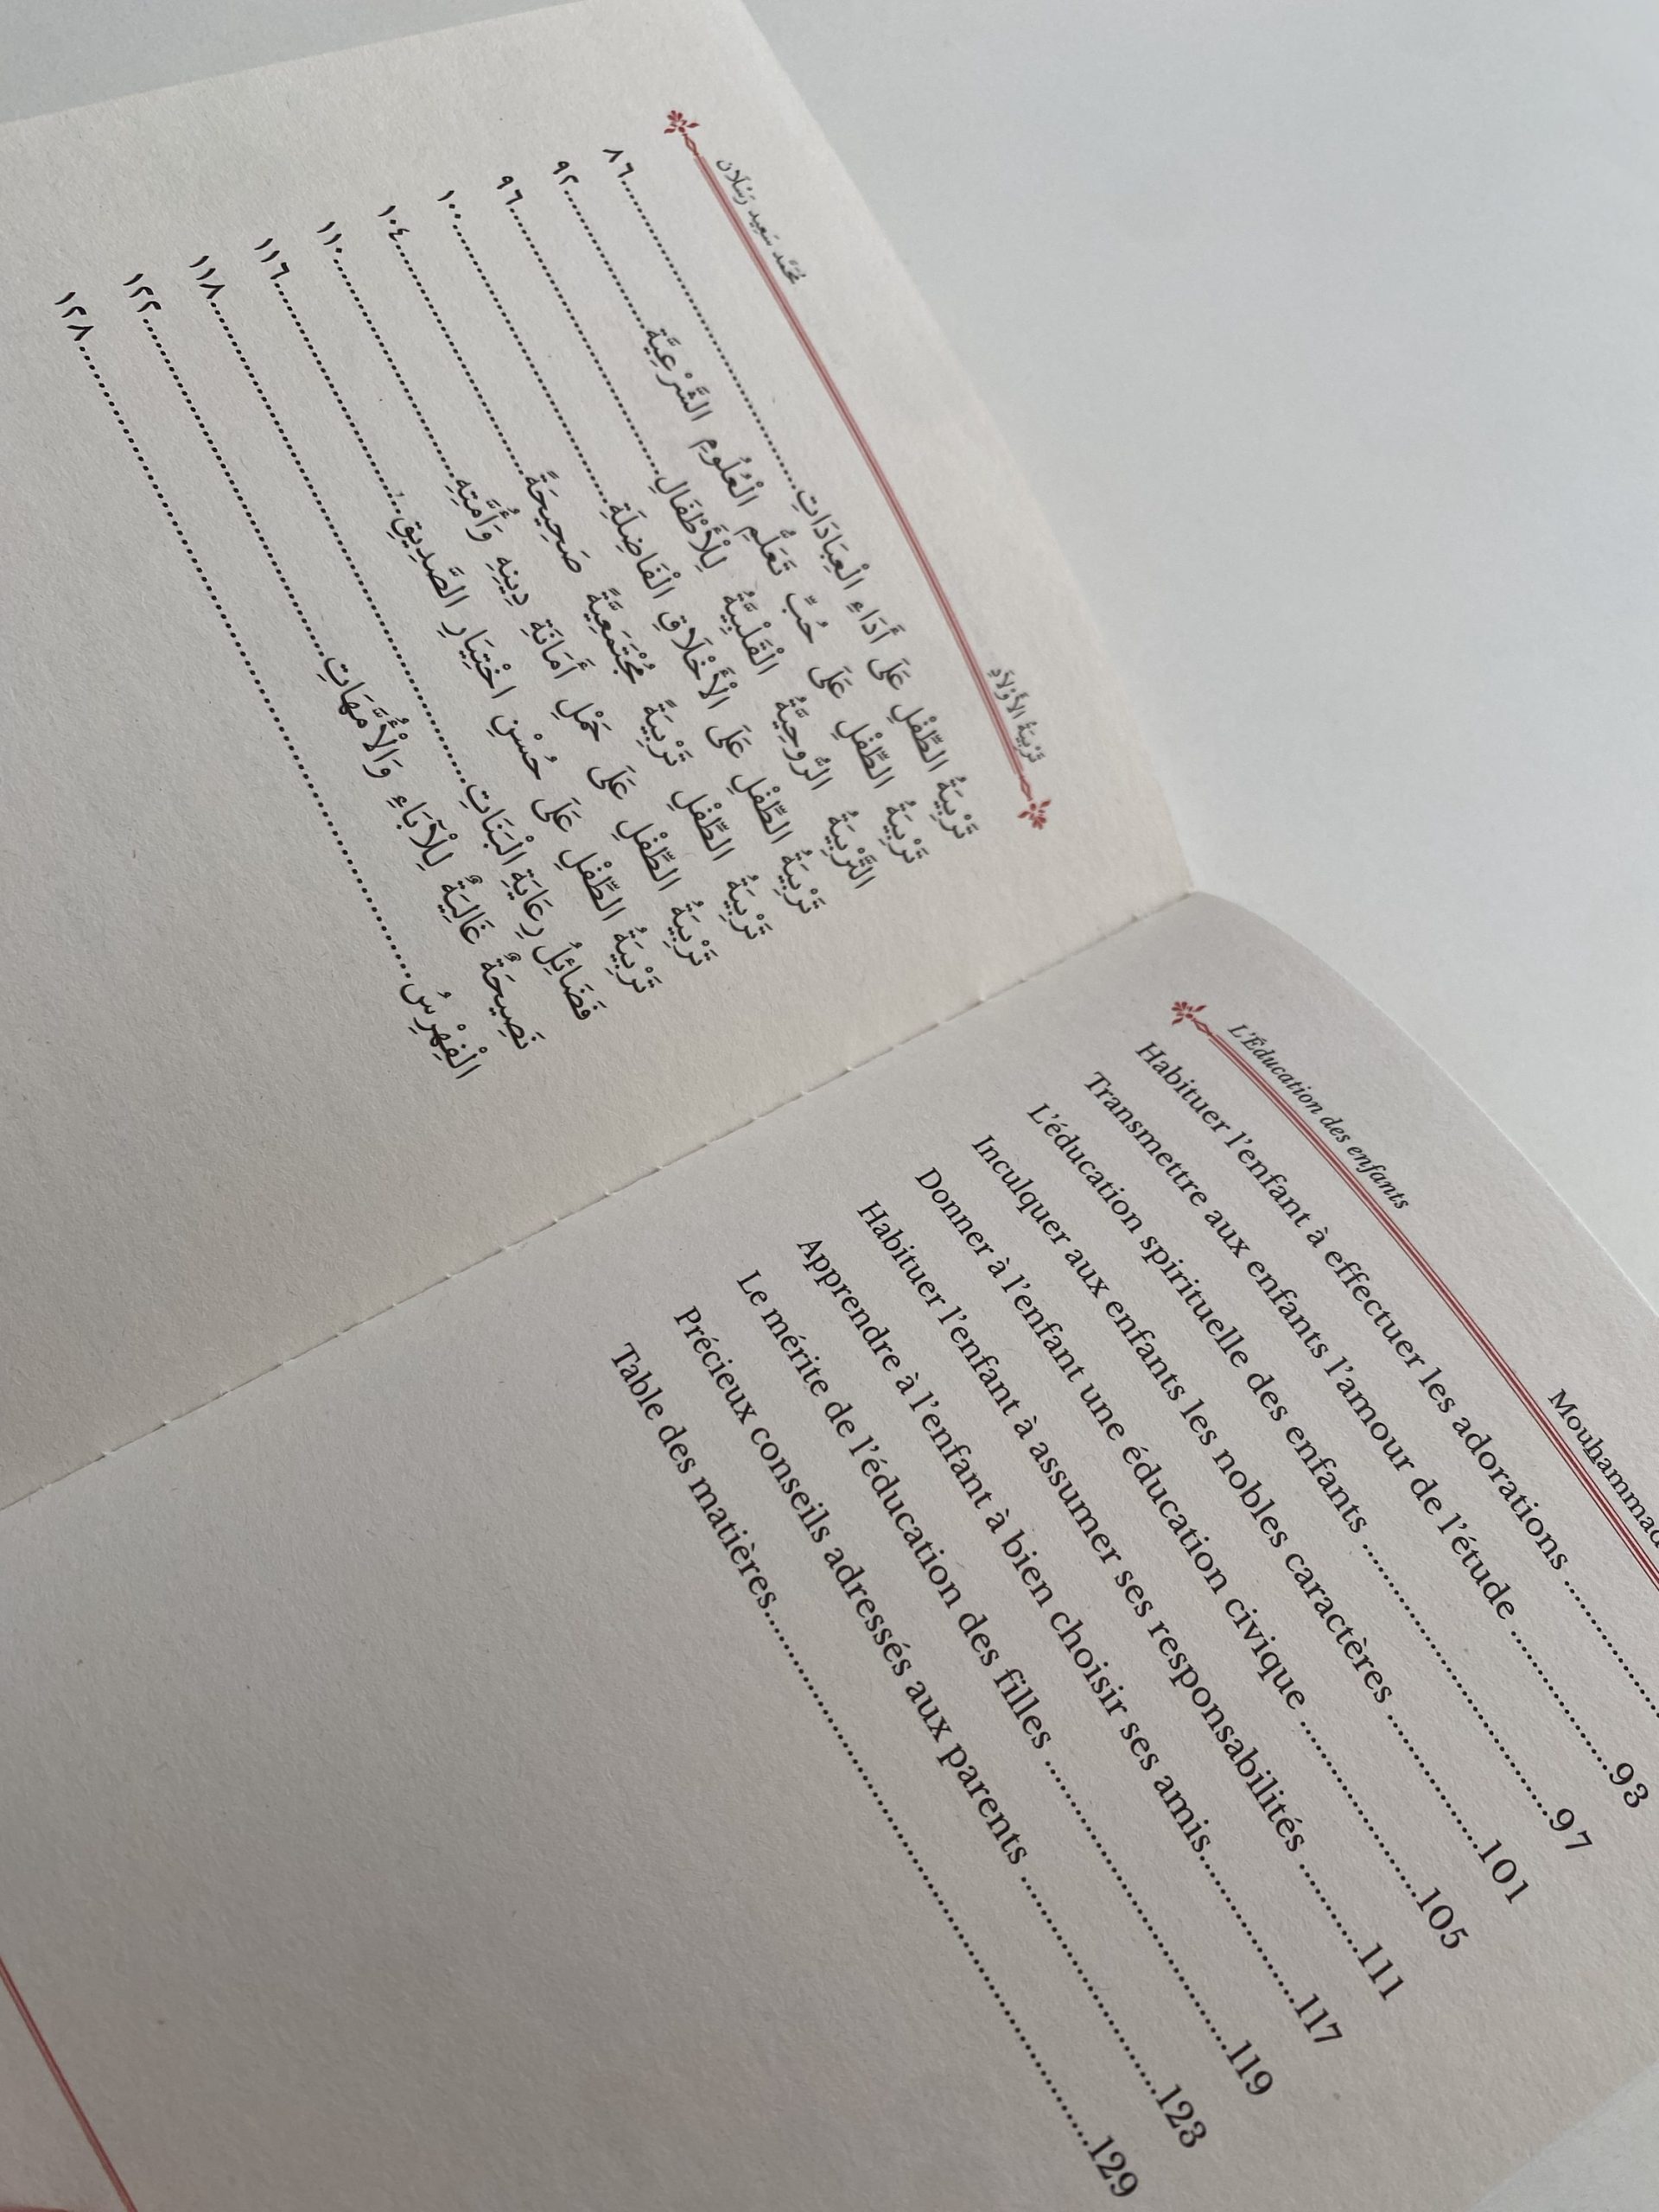 مُحَمَّد سَعِيد رَسْلَان
تَرْبِيَةُ الْأَوْلَادِ
تَرْبِيَةُ الطِّفْلِ عَلَى أَدَاءِ الْعِبَادَاتِ ٨٦
تَرْبِيَةُ الطِّفْلِ عَلَى حُبِّ تَعَلُّمِ الْعُلُومِ الشَّرْعِيَّةِ ٩٢
التَّرْبِيَةُ الرُّوحِيَّةُ الْقَلْبِيَّةُ لِلْأَطْفَالِ ٩٦
تَرْبِيَةُ الطِّفْلِ عَلَى الْأَخْلَاقِ الْفَاضِلَةِ ١٠٠
تَرْبِيَةُ الطِّفْلِ تَرْبِيَةً مُجْتَمَعِيَّةً صَحِيحَةً ١٠٤
تَرْبِيَةُ الطِّفْلِ عَلَى حَمْلِ أَمَانَةِ دِينِهِ وَأُمَّتِهِ ١١٠
تَرْبِيَةُ الطِّفْلِ عَلَى حُسْنِ اخْتِيَارِ الصَّدِيقِ ١١٦
فَضَائِلُ رِعَايَةِ الْبَنَاتِ ١١٨
نَصِيحَةٌ غَالِيَةٌ لِلْآبَاءِ وَالْأُمَّهَاتِ ١٢٢
الْفِهْرِسُ ١٢٨
L'Éducation des enfants
Habituer l'enfant à effectuer les adorations
Transmettre aux enfants l'amour de l'étude 93
L'éducation spirituelle des enfants 97
Inculquer aux enfants les nobles caractères 101
Donner à l'enfant une éducation civique 105
Habituer l'enfant à assumer ses responsabilités 111
Apprendre à l'enfant à bien choisir ses amis 117
Le mérite de l'éducation des filles 119
Précieux conseils adressés aux parents 123
Table des matières 129